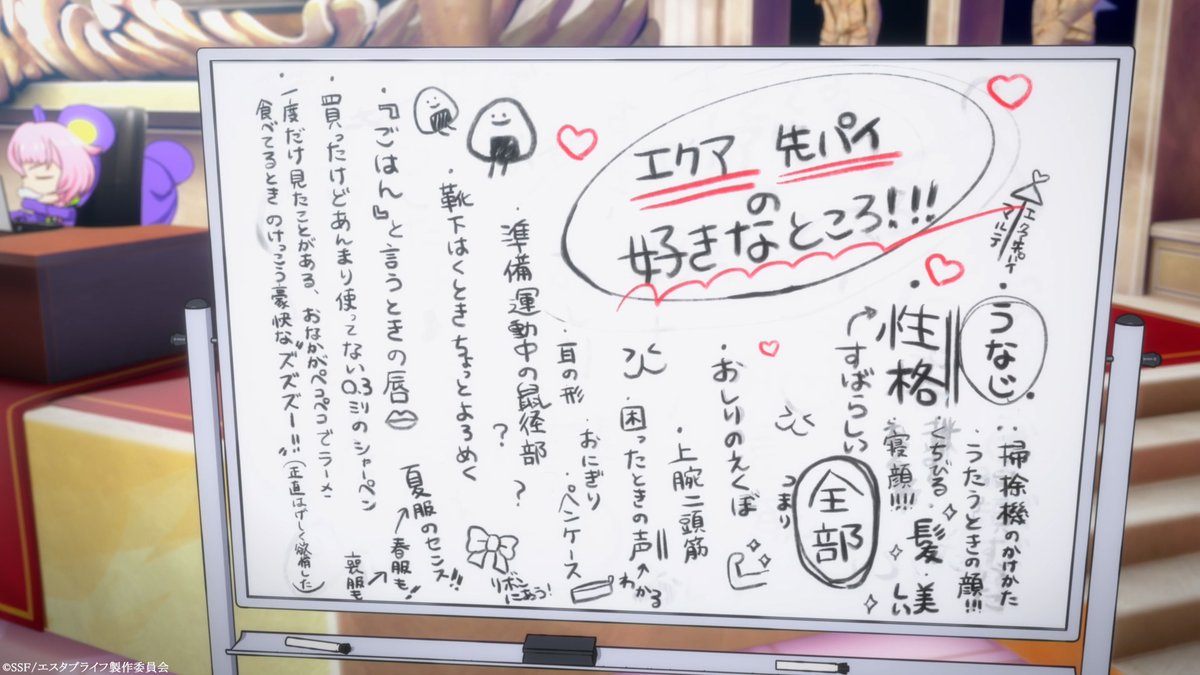 エクア 先パイ
の
好きなところ!!!
エクア先パイ
マルテ
・うなじ
・性格
すばらしい
・掃除機のかけかた
・うたうときの顔!!!
・くちびる
・寝顔!!!!
髪
美しい
つまり
全部
・おしりのえくぼ
・上腕二頭筋
・困ったときの声
わかる
・耳の形
・おにぎり
・ペンケース
・準備運動中の鼠径部
?
?
・靴下はくときちょっとよろめく
リボンにあう!
・『ごはん』と言うときの唇
夏服のセンス!!
春服も!
喪服も
・買ったけどあんまり使ってない0.3ミリのシャーペン
・一度だけ見たことがある、おなかがペコペコでラーメン
食べてるときのけっこう豪快な"ズズズー!!"
(正直はげしく欲情した)
©SSF/エスタブライフ製作委員会